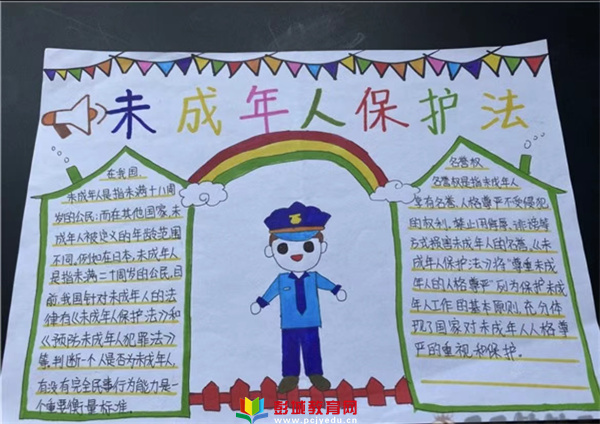 未成年人保护法
在我国，
未成年人是指未满十八周
岁的公民；而在其他国家，未
成年人被定义的年龄范围
不同。例如在日本，未成年人
是指未满二十周岁的公民。目
前，我国针对未成年人的法
律有《未成年人保护法》和
《预防未成年人犯罪法》
等，判断一个人是否为未成年人，
有没有完全民事行为能力是一
个重要衡量标准。
名誉权
名誉权是指未成年人
享有名誉、人格尊严不受侵犯
的权利，禁止用侮辱、诽谤等
方式损害未成年人的名誉。《未
成年人保护法》将“尊重未成
年人的人格尊严”列为保护未成
年人工作的基本原则，充分体
现了国家对未成年人人格尊
严的重视和保护。
彭城教育网
www.pcjyedu.cn